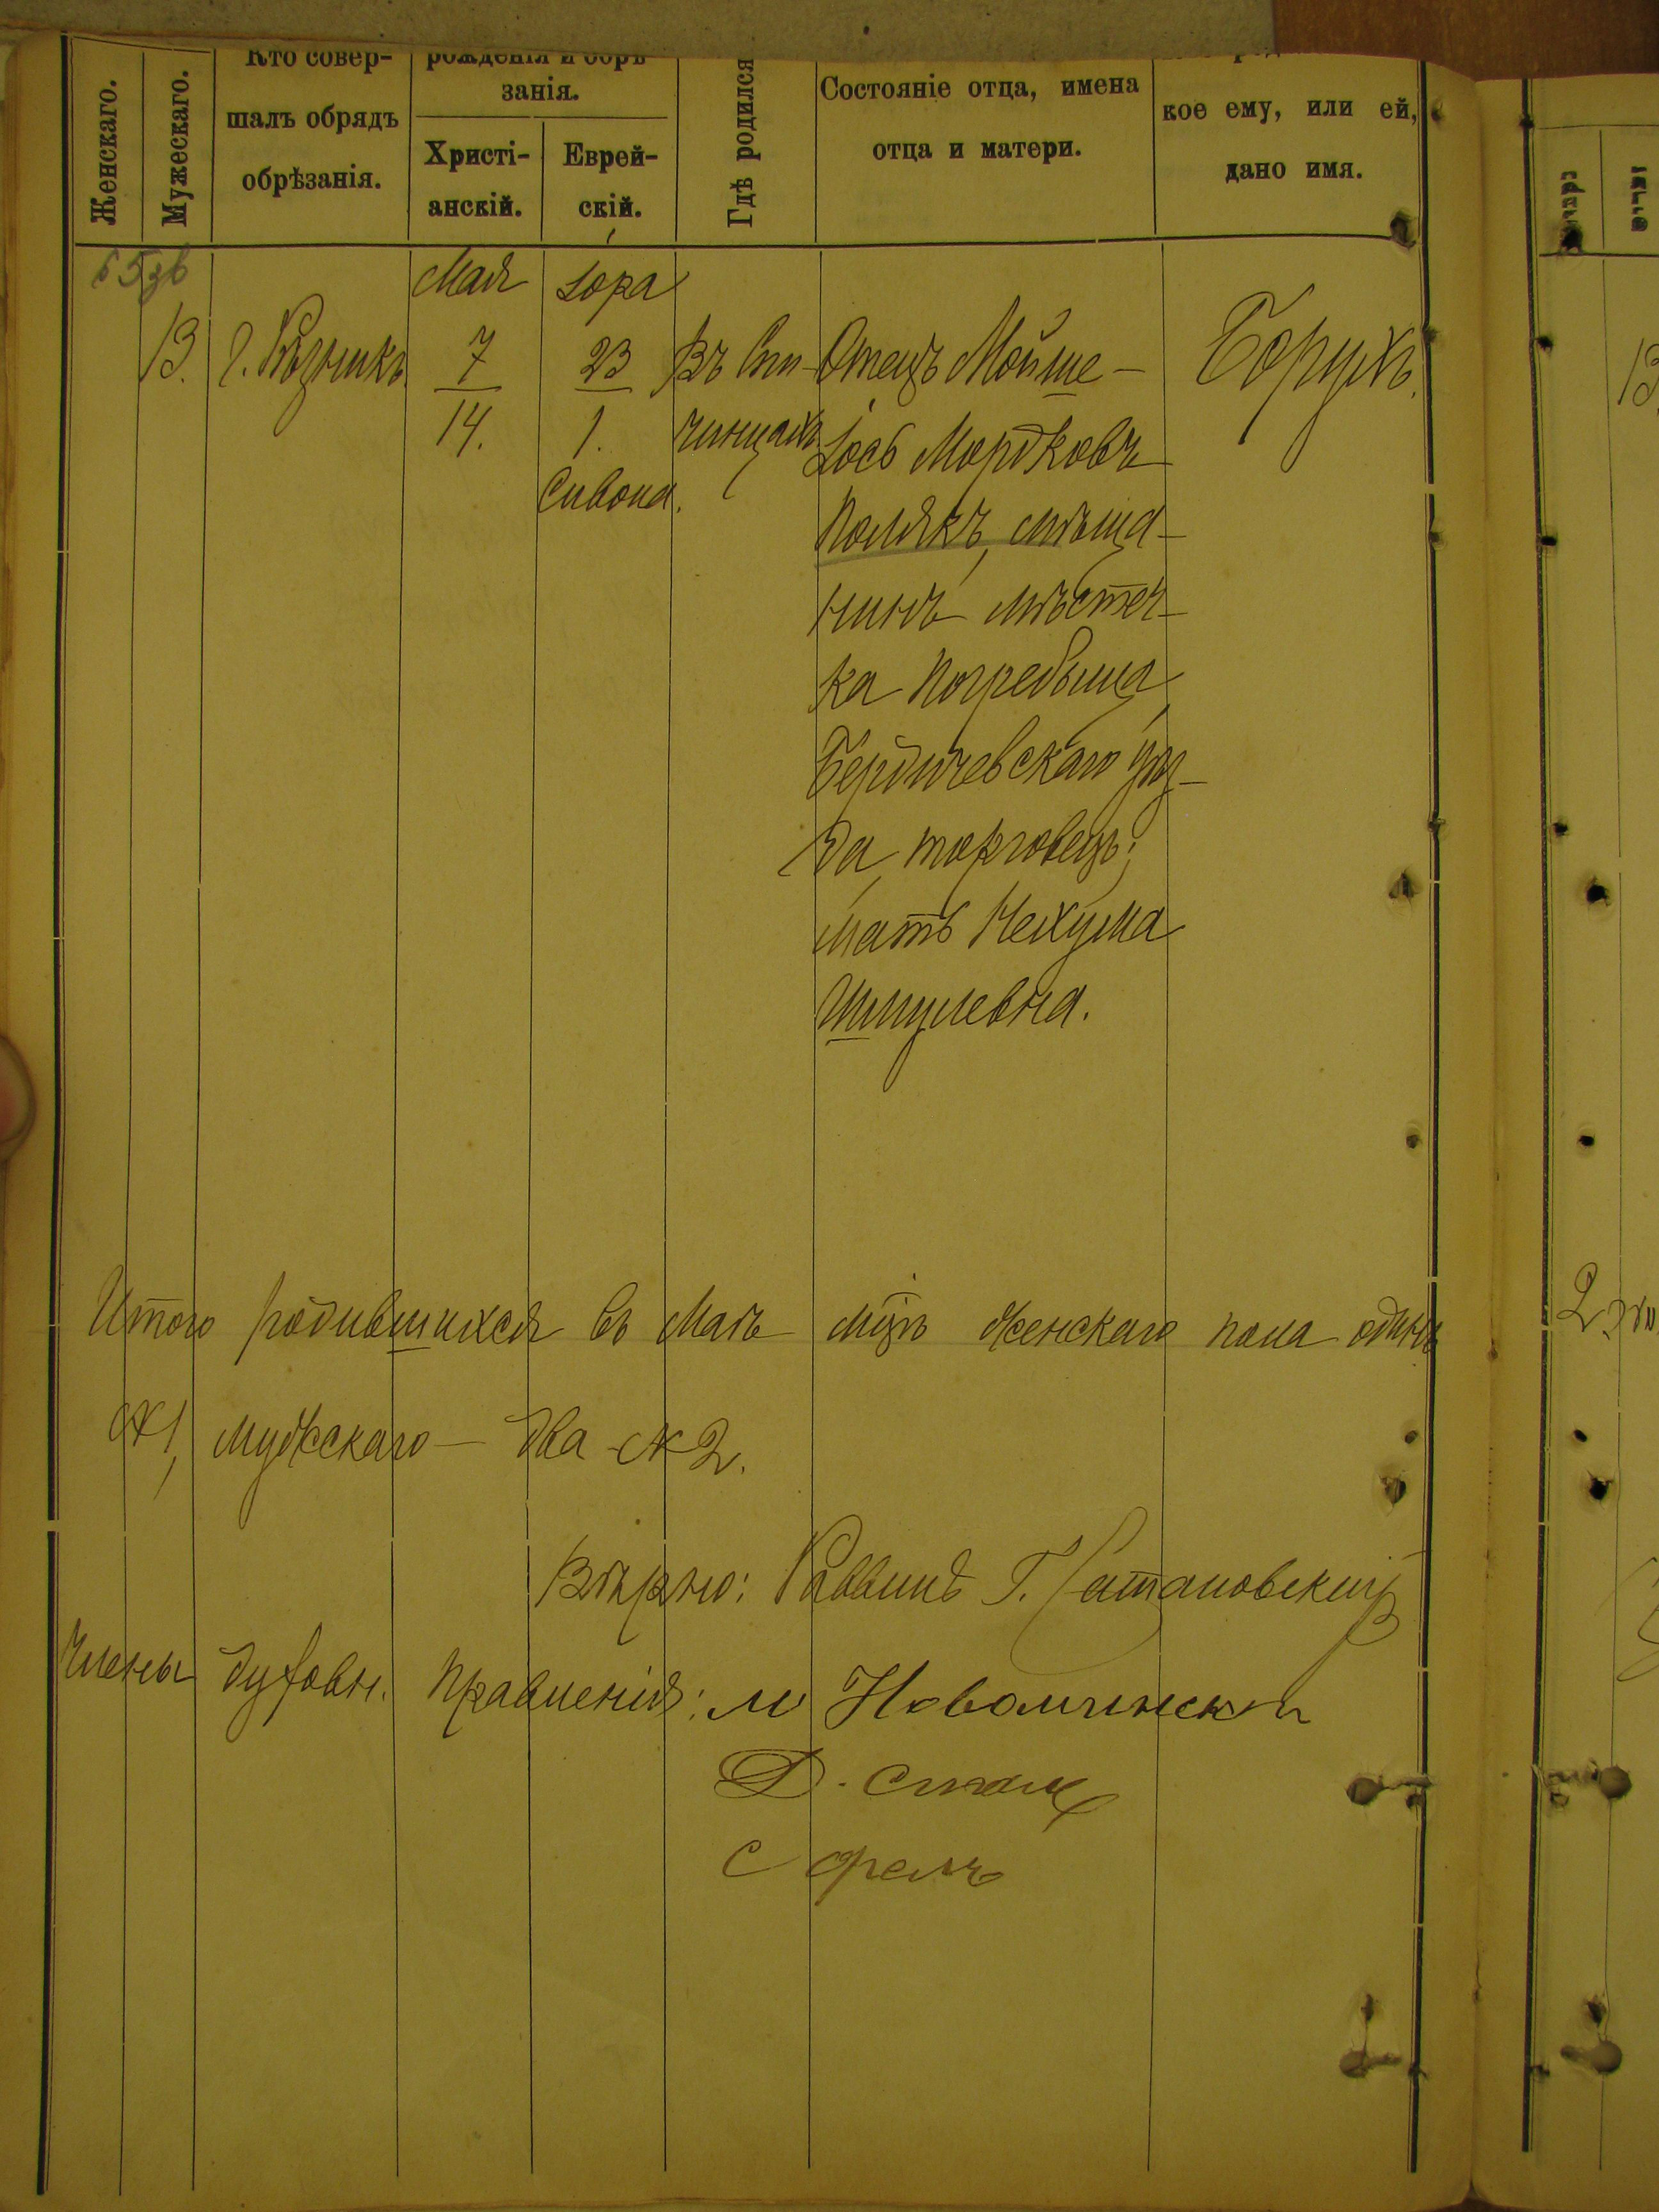 Женскаго.
Мужескаго.
Кто совер-
шалъ обрядъ
обрѣзанія.
рожденія и обрѣ-
занія.
Христі-
анскій.
Еврей-
скій.
Гдѣ родился
Состояніе отца, имена
отца и матери.
кое ему, или ей,
дано имя.
13.
Г. Рѣзникъ
Мая
7
14.
Іора
23
1.
Сивона.
Въ Спи-
чинцахъ
Отецъ Мойше-
Іось Мордковъ
Полякъ, мѣща-
нинъ мѣстеч-
ка Погребыща,
Бердичевскаго уѣз-
да, торговецъ;
мать Нехума
Шмулевна.
Борухъ.
Итого родившихся въ Маѣ мцѣ женскаго пола одинъ
№ 1, мужескаго — два № 2.
Вѣрно: Раввинъ Г. Сатановскій
Члены духовн. Правленія: М
Д.
С